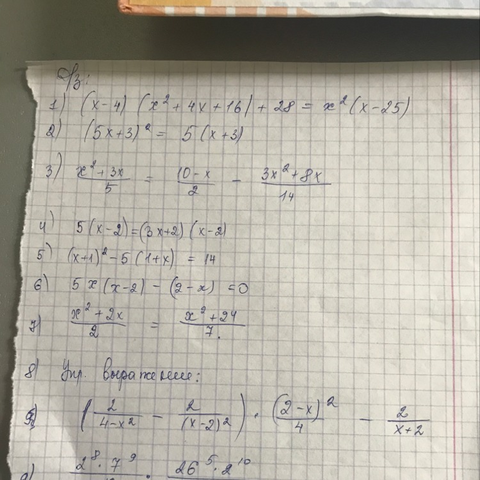 Д/з:
1) (x-4) (x² + 4x + 16) + 28 = x² (x-25)
2) (5x+3)² = 5 (x+3)
3) x² + 3x / 5 = 10-x / 2 - 3x² + 8x / 14
4) 5(x-2) = (3x+2) (x-2)
5) (x+1)² - 5 (1+x) = 14
6) 5x(x-2) - (2-x) = 0
7) x² + 2x / 2 = x² + 24 / 7
8) Упр. выражение:
(2 / 4-x² - 2 / (x-2)²) · (2-x)² / 4 - 2 / x+2
2⁸ · 7⁹ · 26⁵ · 2¹⁰